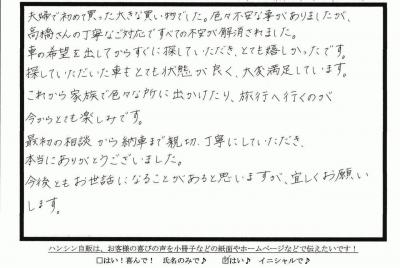 夫婦で初めて買った大きな買い物でした。色々不安な事がありましたが、
高橋さんの丁寧なご対応ですべての不安が解消されました。
車の希望を出してからすぐに探していただき、とても嬉しかったです。
探していただいた車もとても状態が良く、大変満足しています。
これから家族で色々な所に出かけたり、旅行へ行くのが
今からとても楽しみです。
最初の相談から納車まで親切、丁寧にしていただき、
本当にありがとうございました。
今後ともお世話になることがあると思いますが、宜しくお願い
します。
ハンシン自販は、お客様の喜びの声を小冊子などの紙面やホームページなどで伝えたいです！
□はい！喜んで！ 氏名のみで♪ ☑はい♪ イニシャルで♪